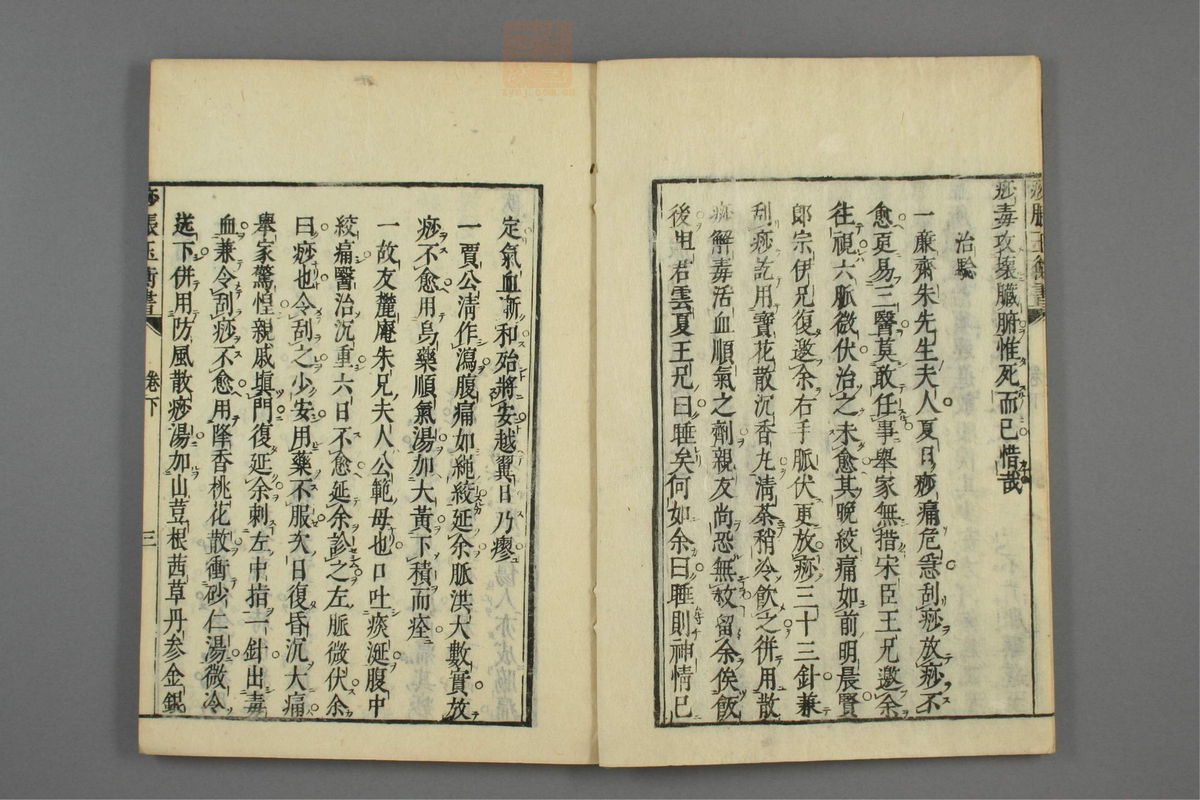 痧毒攻壞臟腑惟死而已惜哉
治驗
一廉齋朱先生夫人夏日痧痛危急刮痧放痧不
愈更易三醫莫敢任事舉家無措宋臣王兄邀余
往視六脈微伏治之未愈其晚絞痛如前明晨賢
郎宗伊兄復邀余右手脈伏更放痧三十三針兼
刮痧訖用寶花散沉香丸清茶稍冷飲之併用散
痧解毒活血順氣之劑親友尚恐無救留余俟飯
後坦君雲夏王兄曰睡矣何如余曰睡則神情已
定氣血漸和殆將安越翼日乃瘳
一賈公淸作瀉腹痛如繩絞延余脈洪大數實放
痧不愈用烏藥順氣湯加大黃下積而痊
一故友麓庵朱兄夫人公範母也口吐痰涎腹中
絞痛醫治沉重六日不愈延余診之左脈微伏余
曰痧也令刮之少安用藥不服次日復昏沉大痛
舉家驚惶親戚塡門復延余刺左中指一針出毒
血兼令刮痧不愈用降香桃花散衝砂仁湯微冷
送下併用防風散痧湯加山豆根茜草丹参金銀
痧脹玉衡書
卷下
三